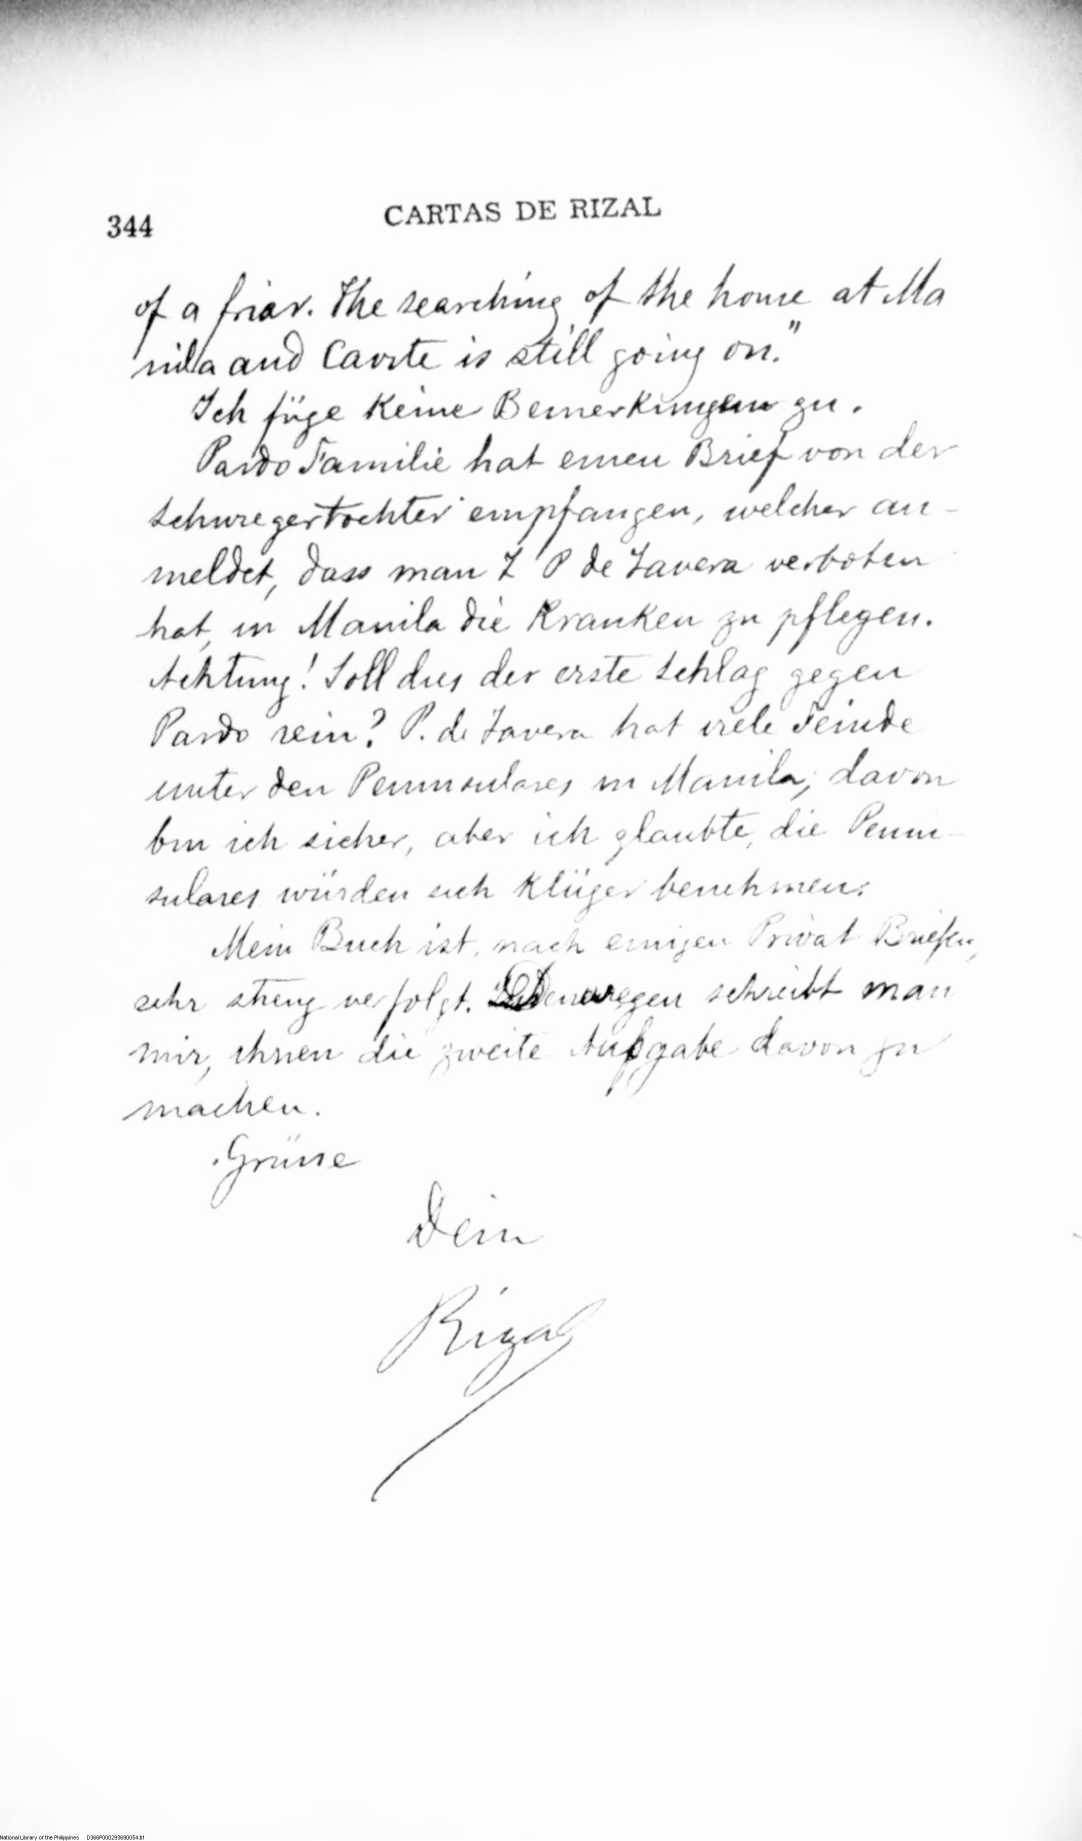 344
CARTAS DE RIZAL
of a friar. The searching of the home at Ma
nila and Cavite is still going on."
Ich füge keine Bemerkungen zu.
Pardo Familie hat einen Brief von der
Schwiegertochter empfangen, welcher an-
meldet, dass man T P de Tavera verboten
hat, in Manila die Kranken zu pflegen.
Achtung! Soll dies der erste Schlag gegen
Pardo sein? P. de Tavera hat viele Feinde
unter den Peninsulares in Manila, davon
bin ich sicher, aber ich glaubte, die Penin-
sulares würden sich klüger benehmen.
Mein Buch ist, nach einigen Privat Briefen,
sehr streng verfolgt. schreibt man
mir, ihnen die zweite Ausgabe davon zu
machen.
Grüsse
Dein
Rizal
National Library of the Philippines